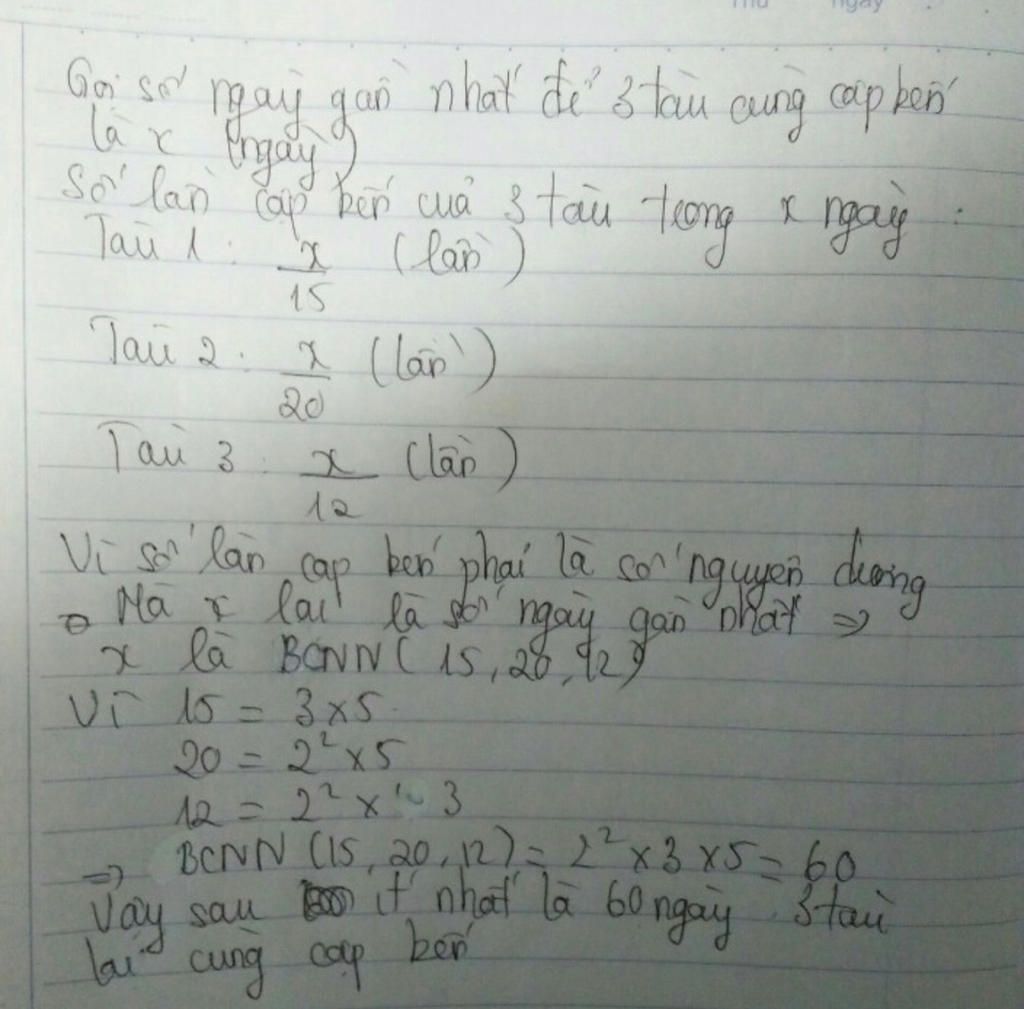 Thứ ngày
Gọi số ngày gần nhất để 3 tàu cùng cập bến
là x (ngày)
Số lần cập bến của 3 tàu trong x ngày :
Tàu 1 : x/15 (lần)
Tàu 2 : x/20 (lần)
Tàu 3 : x/12 (lần)
Vì số lần cập bến phải là số nguyên dương
Mà x lại là số ngày gần nhất =>
x là BCNN (15, 20, 12)
Vì 15 = 3 x 5
20 = 2² x 5
12 = 2² x 3
=> BCNN (15, 20, 12) = 2² x 3 x 5 = 60
Vậy sau ít nhất là 60 ngày 3 tàu
lại cùng cập bến